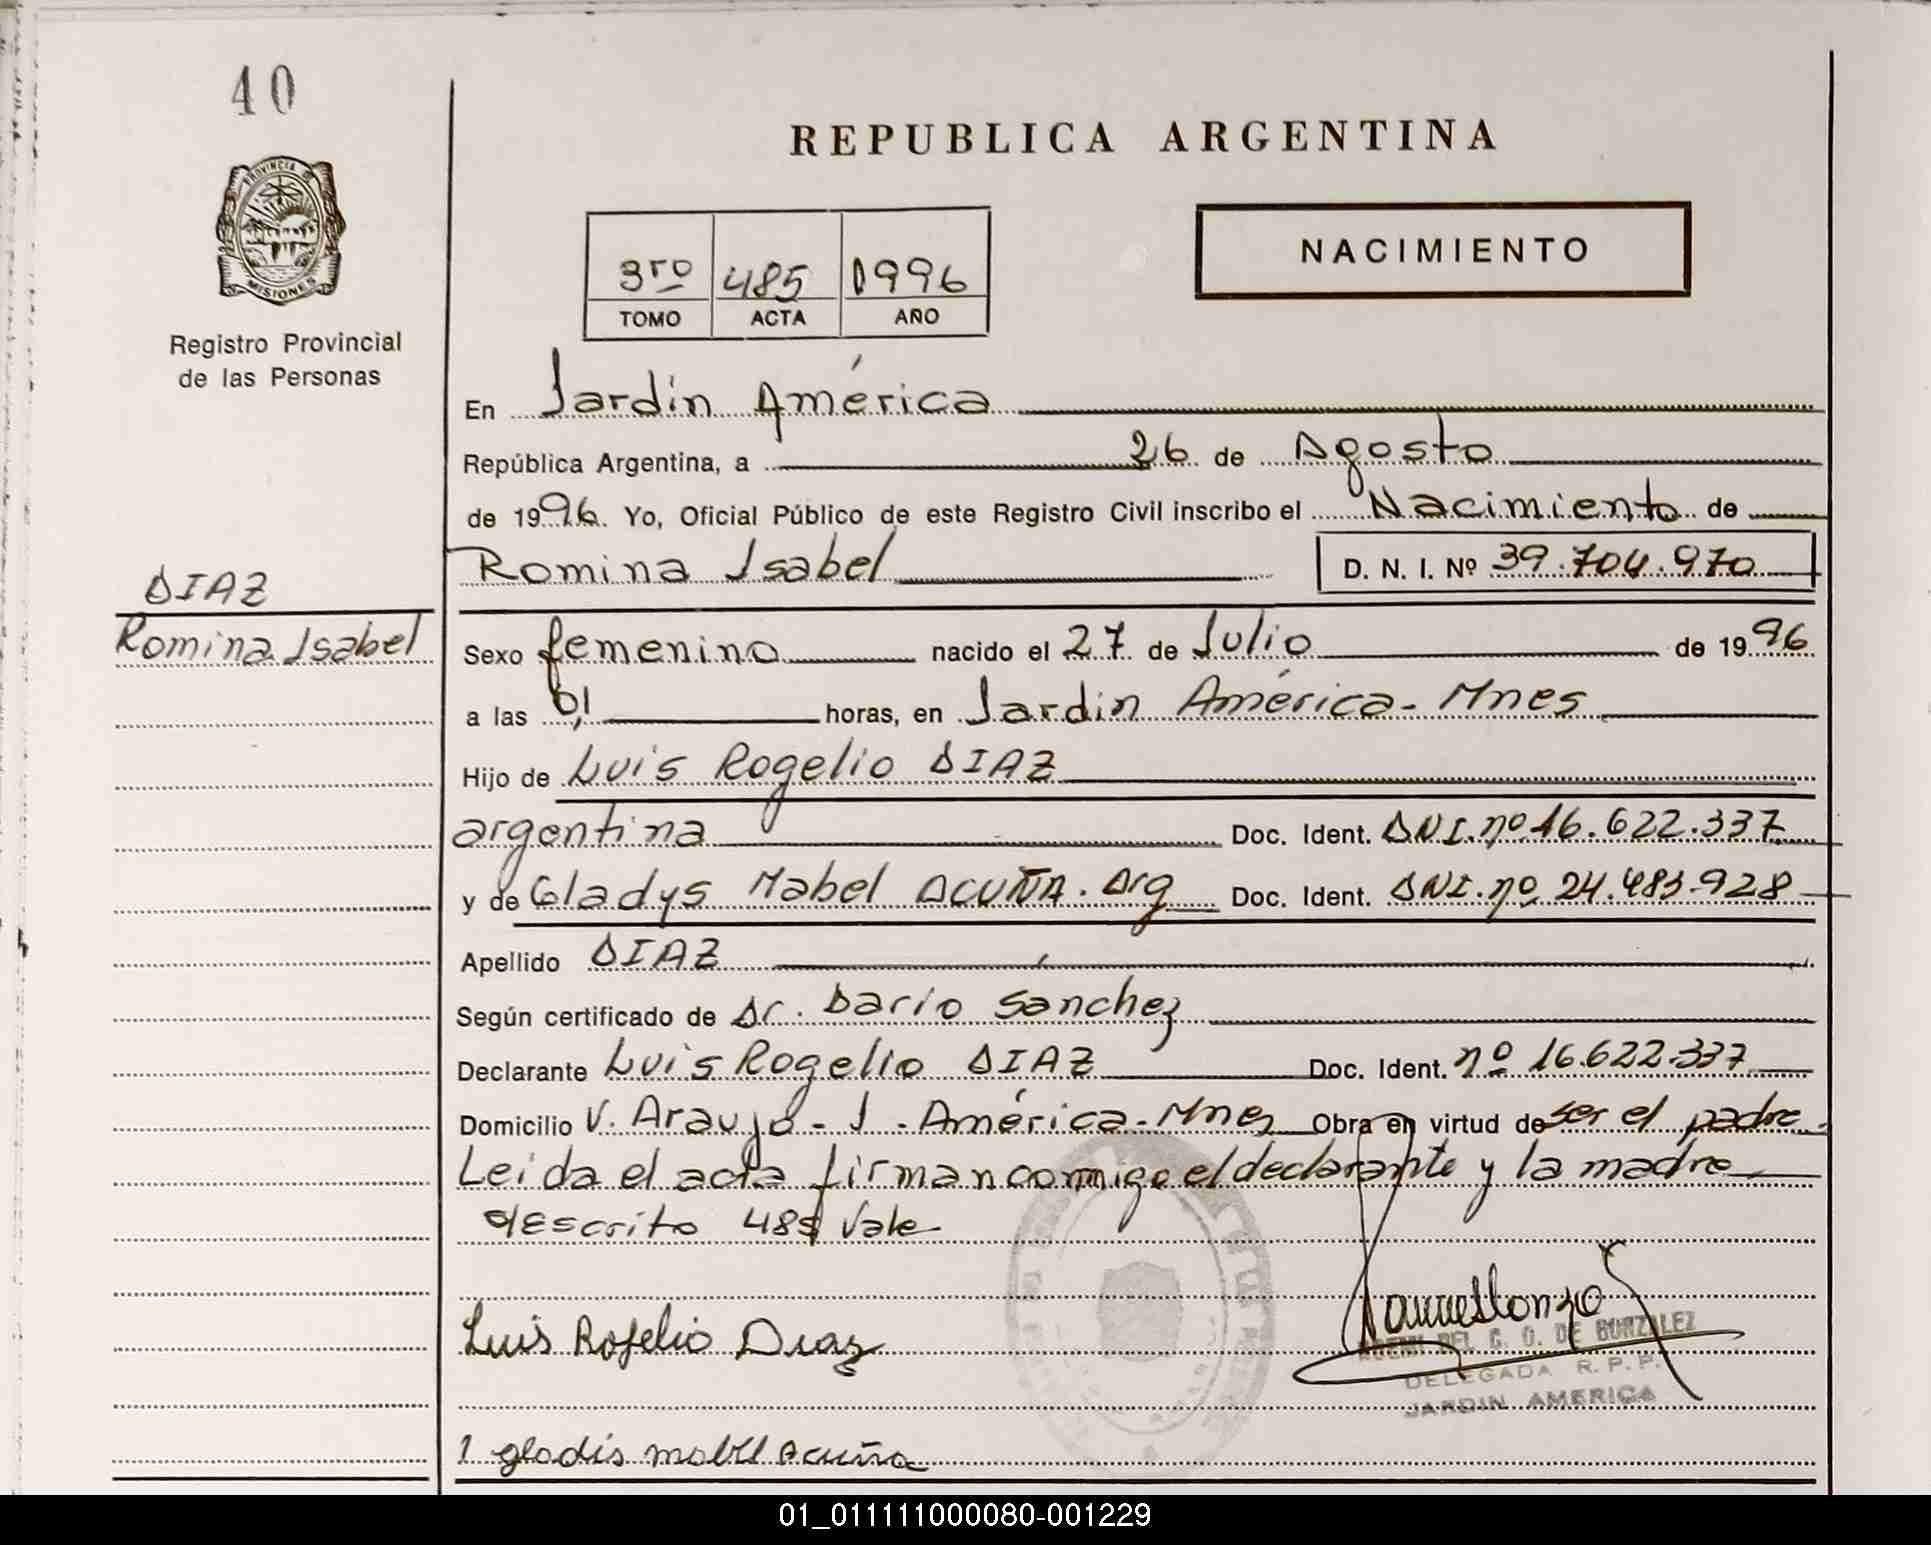 40
PROVINCIA DE
MISIONES
Registro Provincial
de las Personas
REPUBLICA ARGENTINA
NACIMIENTO
3ro 485 1996
TOMO ACTA AÑO
En Jardín América
República Argentina, a 26 de Agosto
de 1996. Yo, Oficial Público de este Registro Civil inscribo el Nacimiento de
Romina Isabel D. N. I. Nº 39.704.970
DIAZ
Romina Isabel
Sexo femenino nacido el 27 de Julio de 1996
a las 01 horas, en Jardin América - Mnes
Hijo de Luis Rogelio DIAZ
argentina Doc. Ident. DNI. nº 16.622.337
y de Gladys Mabel ACUÑA. Arg Doc. Ident. DNI. nº 24.483.928
Apellido DIAZ
Según certificado de Dr. Dario Sanchez
Declarante Luis Rogelio DIAZ Doc. Ident. nº 16.622.337
Domicilio V. Araujo - J. América - Mnes Obra en virtud de ser el padre.
Leida el acta firman conmigo el declarante y la madre
escrito 485 Vale
Luis Rogelio Diaz
DEL C. O. DE GONZALEZ
DELEGADA R. P. P.
JARDIN AMERICA
gladis mabel acuña
01_011111000080-001229